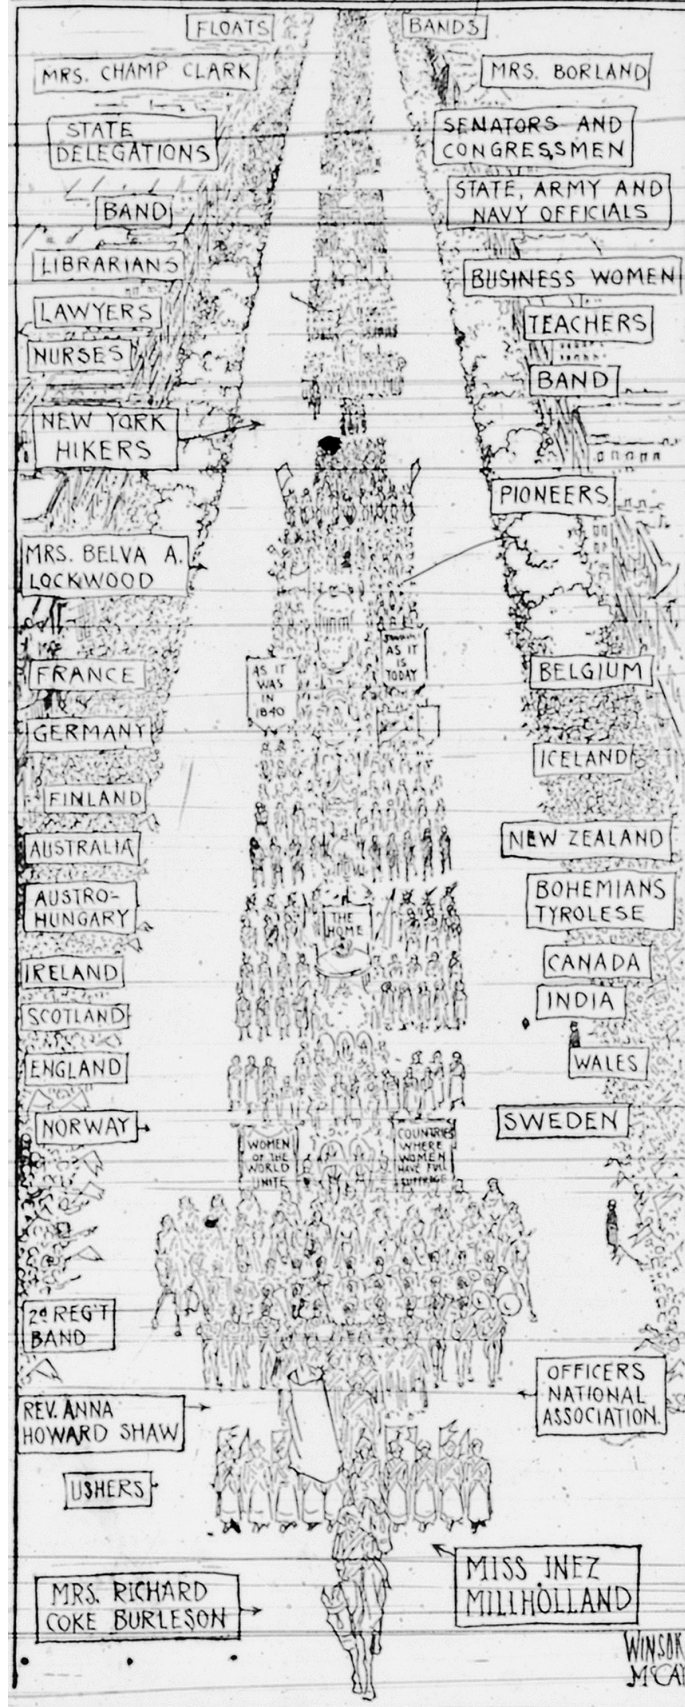 FLOATS
BANDS
MRS. CHAMP CLARK
MRS. BORLAND
STATE
DELEGATIONS
SENATORS AND
CONGRESSMEN
BAND
STATE, ARMY AND
NAVY OFFICIALS
LIBRARIANS
BUSINESS WOMEN
LAWYERS
TEACHERS
NURSES
BAND
NEW YORK
HIKERS
PIONEERS
MRS. BELVA A.
LOCKWOOD
AS IT
WAS
IN
1840
AS IT
IS
TODAY
FRANCE
BELGIUM
GERMANY
ICELAND
FINLAND
AUSTRALIA
NEW ZEALAND
AUSTRO-
HUNGARY
BOHEMIANS
TYROLESE
THE
HOME
IRELAND
CANADA
SCOTLAND
INDIA
ENGLAND
WALES
NORWAY
SWEDEN
WOMEN
OF THE
WORLD
UNITE
COUNTRIES
WHERE
WOMEN
HAVE FULL
SUFFRAGE
2D REG'T
BAND
OFFICERS
NATIONAL
ASSOCIATION.
REV. ANNA
HOWARD SHAW
USHERS
MISS INEZ
MILLHOLLAND
MRS. RICHARD
COKE BURLESON
WINSOR
McCAY